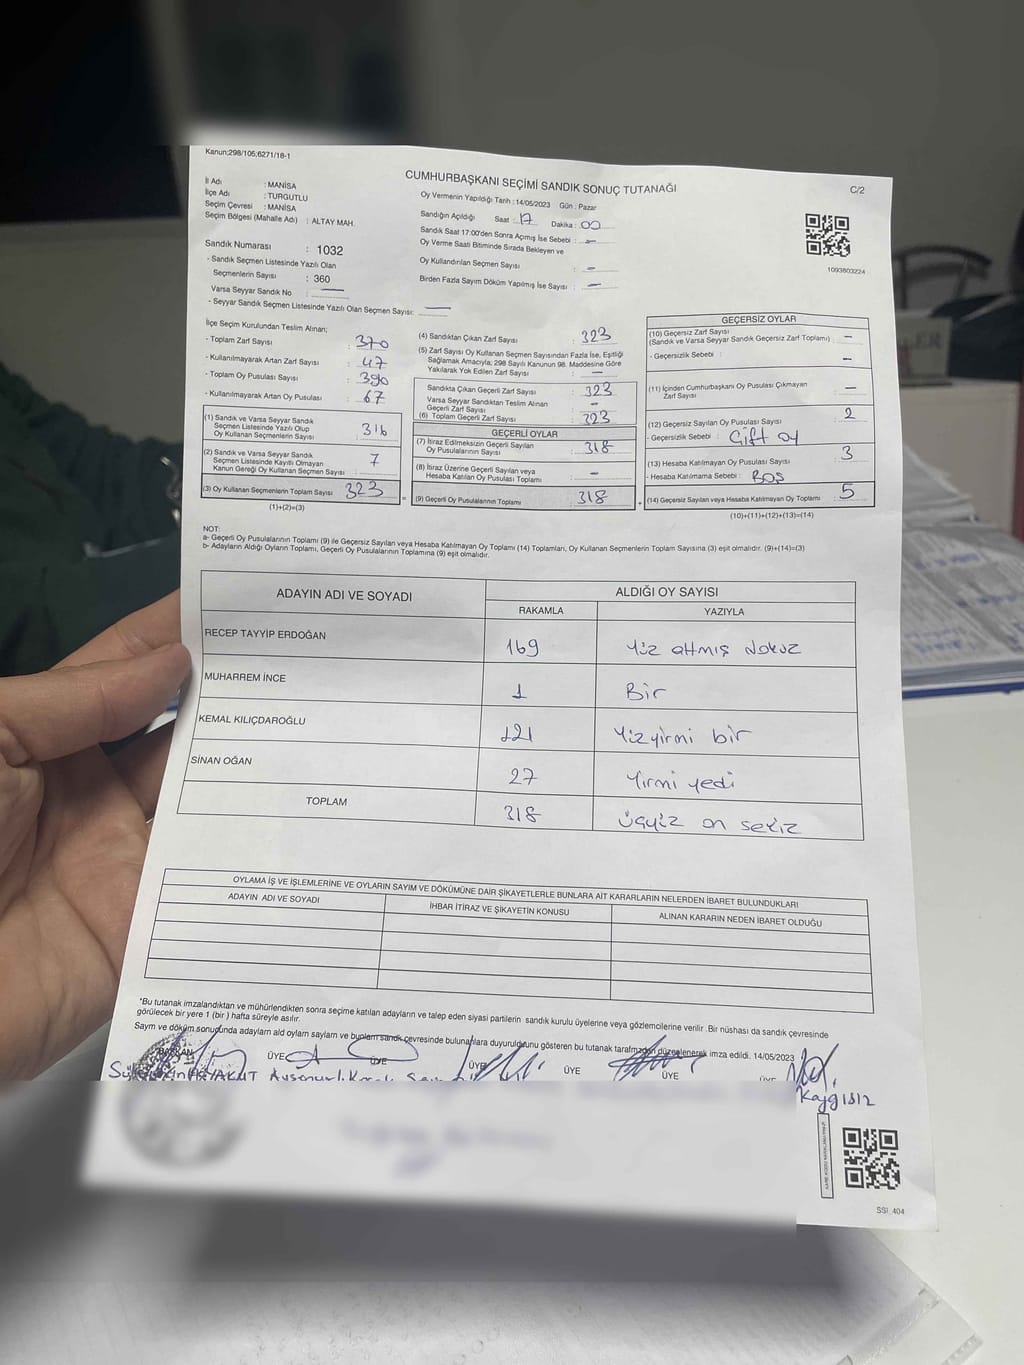 Kanun;298/105;6271/18-1
CUMHURBAŞKANI SEÇİMİ SANDIK SONUÇ TUTANAĞI
C/2
İl Adı : MANİSA
İlçe Adı : TURGUTLU
Seçim Çevresi : MANİSA
Seçim Bölgesi (Mahalle Adı) : ALTAY MAH.
Sandık Numarası : 1032
- Sandık Seçmen Listesinde Yazılı Olan
Seçmenlerin Sayısı : 360
Varsa Seyyar Sandık No : —
- Seyyar Sandık Seçmen Listesinde Yazılı Olan Seçmen Sayısı: —
Oy Vermenin Yapıldığı Tarih : 14/05/2023 Gün : Pazar
Sandığın Açıldığı Saat : 17 Dakika : 00
Sandık Saat 17:00'den Sonra Açımış İse Sebebi : —
Oy Verme Saati Bitiminde Sırada Bekleyen ve
Oy Kullandırılan Seçmen Sayısı : —
Birden Fazla Sayım Döküm Yapılmış İse Sayısı : —
1093803224
İlçe Seçim Kurulundan Teslim Alınan;
- Toplam Zarf Sayısı : 370
- Kullanılmayarak Artan Zarf Sayısı : 47
- Toplam Oy Pusulası Sayısı : 390
- Kullanılmayarak Artan Oy Pusulası : 67
(1) Sandık ve Varsa Seyyar Sandık
Seçmen Listesinde Yazılı Olup
Oy Kullanan Seçmenlerin Sayısı : 316
(2) Sandık ve Varsa Seyyar Sandık
Seçmen Listesinde Kayıtlı Olmayan
Kanun Gereği Oy Kullanan Seçmen Sayısı : 7
(3) Oy Kullanan Seçmenlerin Toplam Sayısı : 323
(1)+(2)=(3)
(4) Sandıktan Çıkan Zarf Sayısı : 323
(5) Zarf Sayısı Oy Kullanan Seçmen Sayısından Fazla İse, Eşitliği
Sağlamak Amacıyla; 298 Sayılı Kanunun 98. Maddesine Göre
Yakılarak Yok Edilen Zarf Sayısı : —
Sandıkta Çıkan Geçerli Zarf Sayısı : 323
Varsa Seyyar Sandıktan Teslim Alınan
Geçerli Zarf Sayısı : —
(6) Toplam Geçerli Zarf Sayısı : 323
GEÇERLİ OYLAR
(7) İtiraz Edilmeksizin Geçerli Sayılan
Oy Pusulalarının Sayısı : 318
(8) İtiraz Üzerine Geçerli Sayılan veya
Hesaba Katılan Oy Pusulası Toplamı : —
(9) Geçerli Oy Pusulalarının Toplamı : 318
GEÇERSİZ OYLAR
(10) Geçersiz Zarf Sayısı
(Sandık ve Varsa Seyyar Sandık Geçersiz Zarf Toplamı) : —
- Geçersizlik Sebebi : —
(11) İçinden Cumhurbaşkanı Oy Pusulası Çıkmayan
Zarf Sayısı : —
(12) Geçersiz Sayılan Oy Pusulası Sayısı : 2
- Geçersizlik Sebebi : Çift oy
(13) Hesaba Katılmayan Oy Pusulası Sayısı : 3
- Hesaba Katılmama Sebebi : BOŞ
(14) Geçersiz Sayılan veya Hesaba Katılmayan Oy Toplamı : 5
(10)+(11)+(12)+(13)=(14)
NOT:
a- Geçerli Oy Pusulalarının Toplamı (9) ile Geçersiz Sayılan veya Hesaba Katılmayan Oy Toplamı (14) Toplamları, Oy Kullanan Seçmenlerin Toplam Sayısına (3) eşit olmalıdır. (9)+(14)=(3)
b- Adayların Aldığı Oyların Toplamı, Geçerli Oy Pusulalarının Toplamına (9) eşit olmalıdır.
ADAYIN ADI VE SOYADI ALDIĞI OY SAYISI
RAKAMLA YAZIYLA
RECEP TAYYİP ERDOĞAN 169 Yüz altmış dokuz
MUHARREM İNCE 1 Bir
KEMAL KILIÇDAROĞLU 121 Yüzyirmi bir
SİNAN OĞAN 27 Yirmi yedi
TOPLAM 318 Üçyüz on sekiz
OYLAMA İŞ VE İŞLEMLERİNE VE OYLARIN SAYIM VE DÖKÜMÜNE DAİR ŞİKAYETLERLE BUNLARA AİT KARARLARIN NELERDEN İBARET BULUNDUKLARI
ADAYIN ADI VE SOYADI İHBAR İTİRAZ VE ŞİKAYETİN KONUSU ALINAN KARARIN NEDEN İBARET OLDUĞU
"Bu tutanak imzalandıktan ve mühürlendikten sonra seçime katılan adayların ve talep eden siyasi partilerin sandık kurulu üyelerine veya gözlemcilerine verilir .Bir nüshası da sandık çevresinde
görülecek bir yere 1 (bir ) hafta süreyle asılır.
Sayım ve döküm sonuçunda adayların ald oyların sayların ve bunların sandık çevresinde bulunanlara duyurulduğunu gösteren bu tutanak tarafımızdan düzenlenerek imza edildi. 14/05/2023
BAŞKAN ÜYE ÜYE ÜYE ÜYE ÜYE ÜYE
Kaygısız
SSI_404